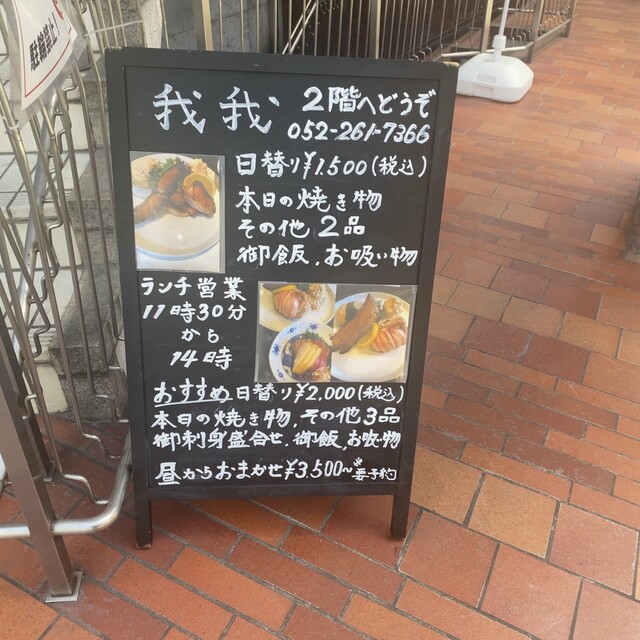 駐輪禁止!
我我 2階へどうぞ
052-261-7366
日替り¥1,500(税込)
本日の焼き物
その他2品
御飯、お吸い物
ランチ営業
11時30分
から
14時
おすすめ日替り¥2,000(税込)
本日の焼き物、その他3品
御刺身盛合せ、御飯、お吸い物
昼からおまかせ¥3,500~※要予約